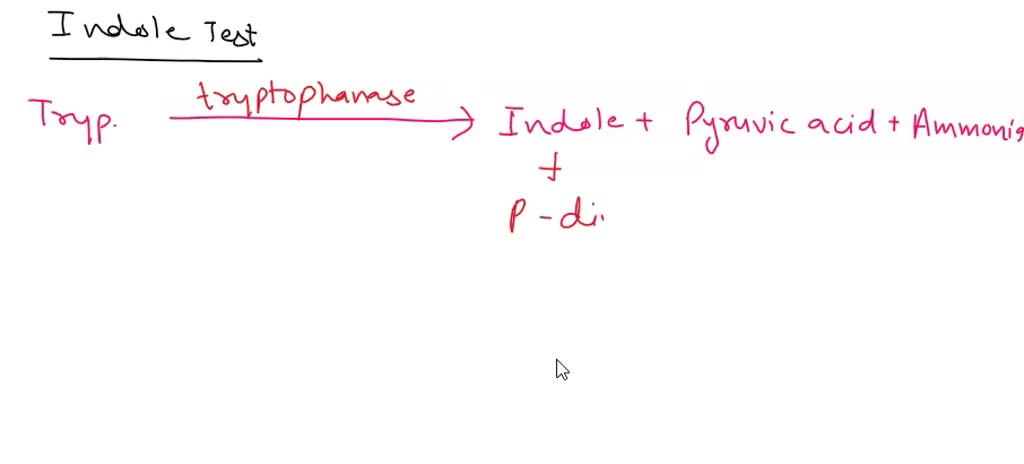 Indole Test
Tryp. tryptophanase Indole + Pyruvic acid + Ammonia
+
P-di